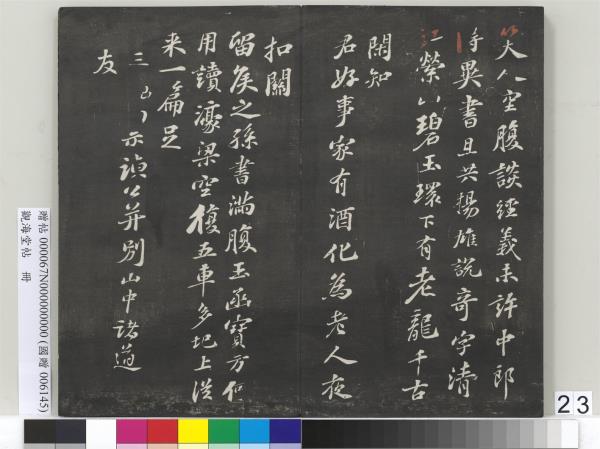 笑人空腹談經義未許中郎
得異書且共揚雄說奇字清
江縈山碧玉環下有老龍千古
閑知
君好事家有酒化為老人夜
扣關
留侯之孫書滿腹玉函寶方何
用讀濠梁空復五車多圯上從
來一編足
三 示禎公并別山中諸道
友
贈帖 000067N000000000 (國贈 006145)
觀海堂帖 冊
23